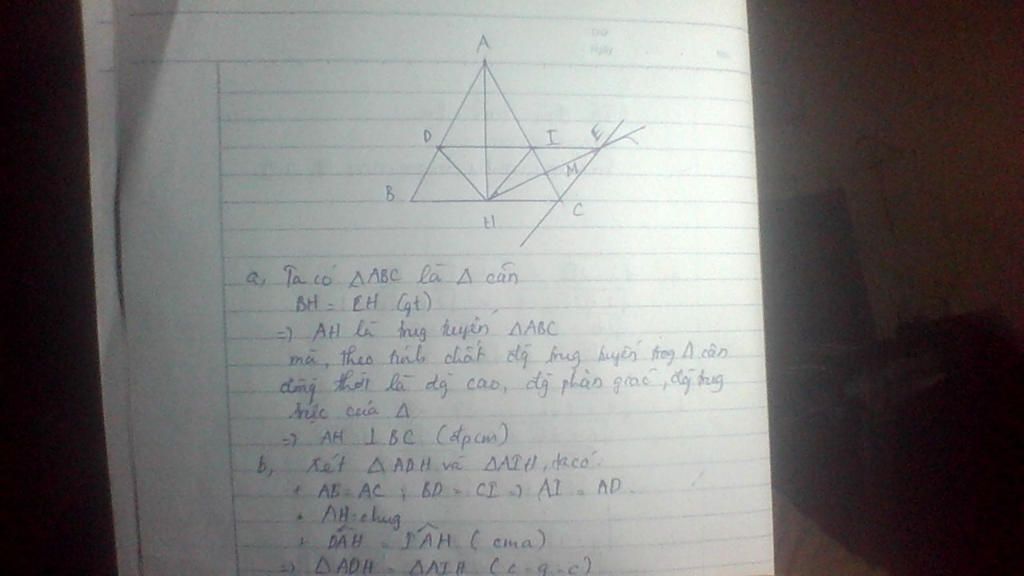 A
D
I
E
M
B
C
H
a, Ta có △ABC là △ cân
BH = CH (gt)
=) AH là trug tuyến △ABC
mà, theo tính chất đg trug tuyến trog △ cân
đồng thời là đg cao, đg phân giác, đg trug
trực của △
=) AH ⊥ BC (đpcm)
b, Xét △ADH và △AIH, ta có:
+ AB = AC ; BD = CI =) AI = AD.
+ AH chug
+ DÂH = IÂH (cma)
=) △ADH = △AIH (c-g-c)